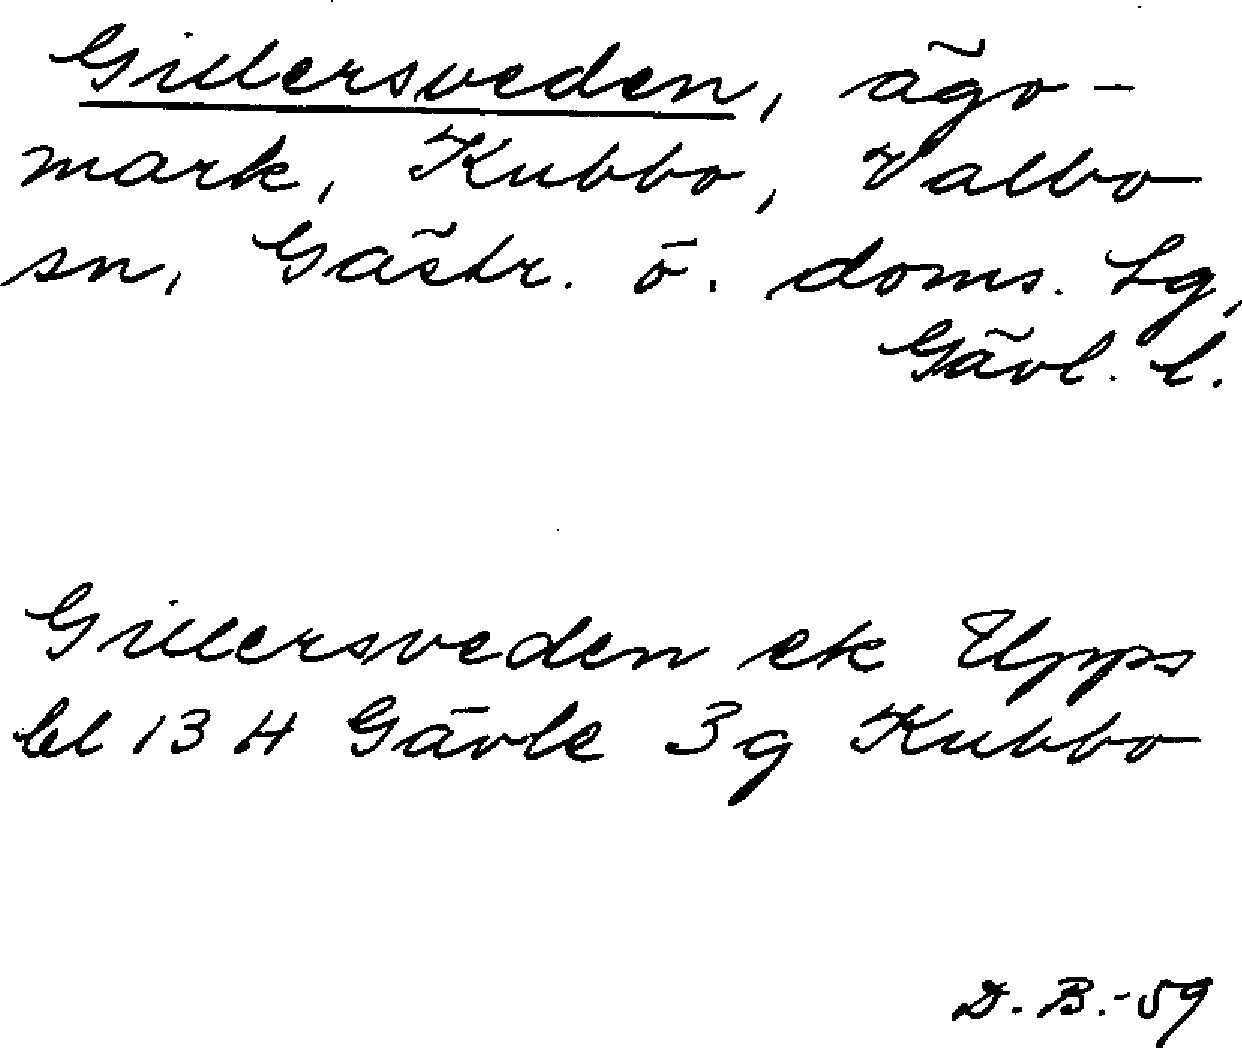 Gillersveden, ägo-
mark, Kubbo, Valbo
sn, Gästr. ö. doms. Lg,
Gävl. l.
Gillersveden ek Upps
bl 13 H Gävle 3g Kubbo
D. B. -59